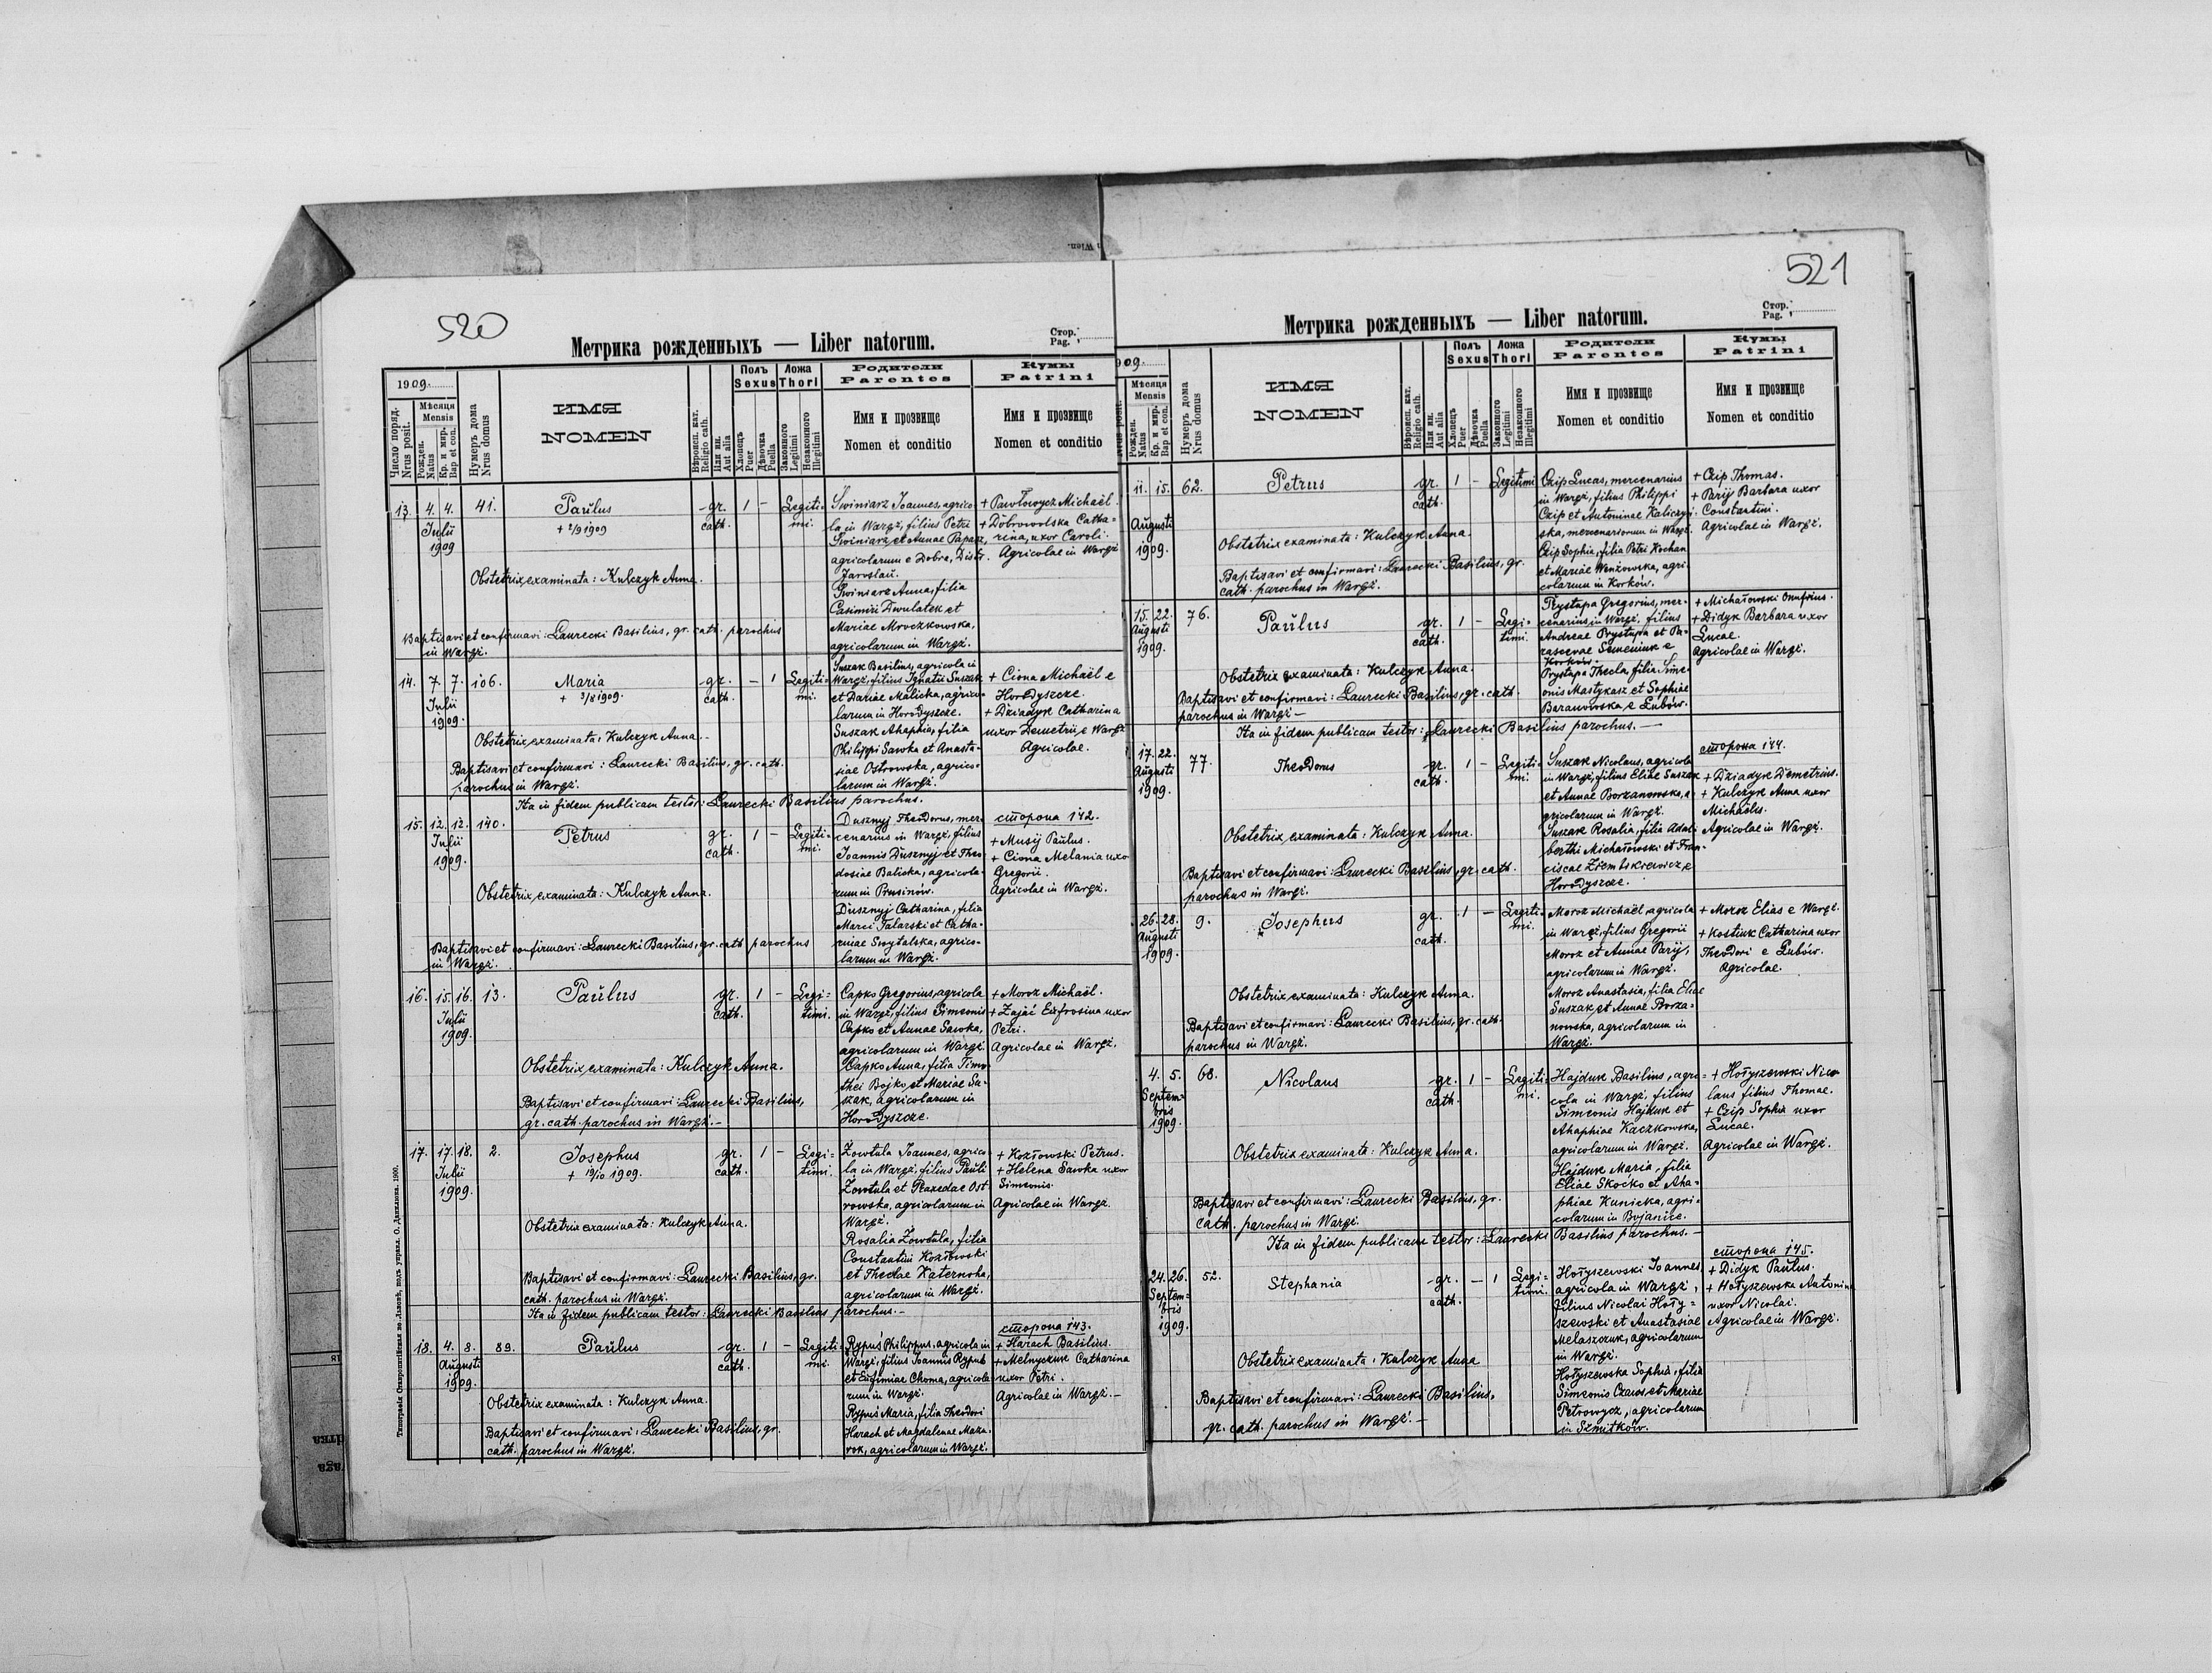 Wien.
520
Метрика рожденныхъ — Liber natorum.
Стор.
Pag.
1909.
Число поряд.
Nrus posit.
Мѣсяця
Mensis
Рожден.
Natus
Кр. и мир.
Bap et con.
Нумеръ дома
Nrus domus
ИМЯ
NOMEN
Вѣроисп. кат.
Religio cath.
Или ин.
Aut alia
Полъ
Sexus
Хлопець
Puer
Дѣвочка
Puella
Ложа
Thori
Законного
Legitimi
Незаконного
Illegitimi
Родители
Parentes
Имя и прозвище
Nomen et conditio
Кумы
Patrini
Имя и прозвище
Nomen et conditio
13. 4. 4. Julii 1909 41. Paŭlus
+ 2/9 1909
gr. cath. 1 — Legitimi.
Swiniarz Joannes, agrico-
la in Waręż, filius Petri
Swiniarz et Annae Paparz,
agricolarum e Dobra, Distr.
Jaroslaŭ.
Swiniarz Anna, filia
Casimiri Dwulatek et
Mariae Mroczkowska,
agricolarum in Waręż.
+ Pawłowycz Michaël.
+ Dobrowolska Catha=
rina, uxor Caroli.
Agricolae in Waręż
Obstetrix examinata: Kulczyk Anna.
Baptisavi et confirmavi: Laurecki Basilius, gr. cath. parochus
in Waręż.
14. 7. 7. Julii 1909. 106. Maria
+ 3/8 1909.
gr. cath. — 1 Legitimi.
Suszak Basilius, agricola in
Waręż, filius Ignatii Suszak
et Dariae Malicka, agrico-
larum in Horodyszcze.
Suszak Ahaphia, filia
Philippi Sawka et Anasta-
siae Ostrowska, agrico-
larum in Waręż.
+ Ciona Michaël e
Horodyszcze.
+ Dziadyk Catharina
uxor Demetrii, e Waręż
Agricolae.
Obstetrix examinata: Kulczyk Anna.-
Baptisavi et confirmavi: Laurecki Basilius, gr. cath.
parochus in Waręż.
Ita in fidem publicam testor: Laurecki Basilius parochus.
15. 12. 12. Julii 1909. 140. Petrus
gr. cath. 1 — Legitimi.
Dusznyj Theodorus, mer-
cenarius in Waręż, filius
Joannis Dusznyj et Theo-
dosiae Balicka, agricola-
rum in Brusinów.
Dusznyj Catharina, filia
Marci Talarski et Catha-
rinae Swytalska, agrico-
larum in Waręż.
сторона 142.
+ Musij Paŭlus.
+ Ciona Melania uxor
Gregorii.
Agricolae in Waręż.
Obstetrix examinata: Kulczyk Anna.
Baptisavi et confirmavi: Laurecki Basilius, gr. cath parochus
in Waręż.
16. 15. 16. Julii 1909. 13. Paŭlus
gr. cath. 1 — Legitimi.
Capko Gregorius, agricola
in Waręż, filius Simeonis
Capko et Annae Sawka,
agricolarum in Waręż.
Capko Anna, filia Timo-
thei Bojko et Mariae Su-
szak, agricolarum in
Horodyszcze.
+ Moroz Michaël.
+ Zajać Eufrosina uxor
Petri.
Agricolae in Waręż.
Obstetrix examinata: Kulczyk Anna.
Baptisavi et confirmavi: Laurecki Basilius,
gr. cath. parochus in Waręż.-
17. 17. 18. Julii 1909. 2. Josephus
+ 19/10 1909.
gr. cath. 1 — Legitimi.
Zowtula Joannes, agrico-
la in Waręż, filius Pauli
Zowtula et Praxedae Ost-
rowska, agricolarum in
Waręż.
Rosalia Zowtula, filia
Constantini Kozłowski
et Theclae Katernoha,
agricolarum in Waręż.
+ Kozłowski Petrus.
+ Helena Sawka uxor
Simeonis.
Agricolae in Waręż.
Obstetrix examinata: Kulczyk Anna.
Baptisavi et confirmavi: Laurecki Basilius, gr.
cath. parochus in Waręż.
Ita in fidem publicam testor: Laurecki Basilius parochus.-
18. 4. 8. Augusti 1909. 89. Paŭlus
gr. cath. 1 — Legitimi.
Rypuś Philippus, agricola in
Waręż, filius Joannis Rypuś
et Eufimiae Choma, agricola-
rum in Waręż.
Rypuś Maria, filia Theodori
Harach et Magdalenae Maza-
rok, agricolarum in Waręż.
сторона 143.
+ Harach Basilius.
+ Melnyczuk Catharina
uxor Petri.
Agricolae in Waręż.-
Obstetrix examinata: Kulczyk Anna.
Baptisavi et confirmavi: Laurecki Basilius, gr.
cath. parochus in Waręż.
Типографія Ставропигійская во Львовѣ, подъ управл. О. Данилюка. 1900.
521
Метрика рожденныхъ — Liber natorum.
Стор.
Pag.
909.
Nrus posit.
Мѣсяця
Mensis
Рожден.
Natus
Кр. и мир.
Bap et con.
Нумеръ дома
Nrus domus
ИМЯ
NOMEN
Вѣроисп. кат.
Religio cath.
Или ин.
Aut alia
Полъ
Sexus
Хлопець
Puer
Дѣвочка
Puella
Ложа
Thori
Законного
Legitimi
Незаконного
Illegitimi
Родители
Parentes
Имя и прозвище
Nomen et conditio
Кумы
Patrini
Имя и прозвище
Nomen et conditio
11. 15. Augusti 1909. 62. Petrus
gr. cath. 1 — Legitimi
Czip Lucas, mercenarius
in Waręż, filius Philippi
Czip et Antoninae Kaliczyń-
ska, mercenariorum in Waręż.
Czip Sophia, filia Petri Kochan
et Mariae Wenżowska, agri-
colarum in Korków.
+ Czip Thomas.
+ Parij Barbara uxor
Constantini.
Agricolae in Waręż.
Obstetrix examinata: Kulczyk Anna.
Baptisavi et confirmavi: Laurecki Basilius, gr.
cath. parochus in Waręż.
15. 22. Augusti 1909. 76. Paŭlus
gr. cath. 1 — Legitimi.
Prystupa Gregorius, mer-
cenarius in Waręż, filius
Andreae Prystupa et Pa-
rascevae Semeniuk e
Korków.
Prystupa Thecla, filia Sime-
onis Mastykasz et Sophiae
Baranowska, e Lubów.
+ Michałowski Onufrius.
+ Didyk Barbara uxor
Lucae.
Agricolae in Waręż.
Obstetrix examinata: Kulczyk Anna.
Baptisavi et confirmavi: Laurecki Basilius, gr. cath.
parochus in Waręż —
Ita in fidem publicam testor: Laurecki Basilius parochus. —
17. 22. Augusti 1909. 77. Theodorus
gr. cath. 1 — Legitimi.
Suszak Nicolaus, agricola
in Waręż, filius Eliae Suszak
et Annae Borzanowska, a-
gricolarum in Waręż.
Suszak Rosalia, filia Adal-
berthi Michałowski et Fran-
ciscae Ziembikiewicz, e
Horodyszcze.
сторона 144.
+ Dziadyk Demetrius.
+ Kulczyk Anna uxor
Michaëlis.
Agricolae in Waręż.
Obstetrix examinata: Kulczyk Anna.
Baptisavi et confirmavi: Laurecki Basilius, gr. cath.
parochus in Waręż.
26. 28. Augusti 1909. 9. Josephus
gr. cath. 1 — Legitimi.
Moroz Michaël, agricola
in Waręż, filius Gregorii
Moroz et Annae Parij,
agricolarum in Waręż.
Moroz Anastasia, filia Eliae
Suszak et Annae Borza-
nowska, agricolarum in
Waręż.
+ Moroz Elias e Waręż.
+ Kostiuk Catharina uxor
Theodori e Lubów.
Agricolae.
Obstetrix examinata: Kulczyk Anna.
Baptisavi et confirmavi: Laurecki Basilius, gr. cath.
parochus in Waręż.
4. 5. Septembris 1909. 68. Nicolaus
gr. cath. 1 — Legitimi.
Hajduk Basilius, agri-
cola in Waręż, filius
Simeonis Hajduk et
Ahaphiae Kaczkowska,
agricolarum in Waręż.
Hajduk Maria, filia
Eliae Skoćko et Aha=
phiae Kunicka, agri-
colarum in Bojanice.
+ Hołyszewski Nico-
laus filius Thomae.
+ Czip Sophia uxor
Lucae.
Agricolae in Waręż.
Obstetrix examinata: Kulczyk Anna.
Baptisavi et confirmavi: Laurecki Basilius, gr.
cath. parochus in Waręż.
Ita in fidem publicam testor: Laurecki Basilius parochus.-
24. 26. Septembris 1909. 52. Stephania
gr. cath. — 1 Legitimi.
Hołyszewski Joannes,
agricola in Waręż,
filius Nicolai Hoły=
szewski et Anastasiae
Melaszczuk, agricolarum
in Waręż.
Hołyszewska Sophia, filia
Simeonis Czaus et Mariae
Petrowycz, agricolarum
in Szmitków.
сторона 145.
+ Didyk Paulus.
+ Hołyszewska Antonina
uxor Nicolai.
Agricolae in Waręż.
Obstetrix examinata: Kulczyk Anna
Baptisavi et confirmavi: Laurecki Basilius,
gr. cath. parochus in Waręż.-